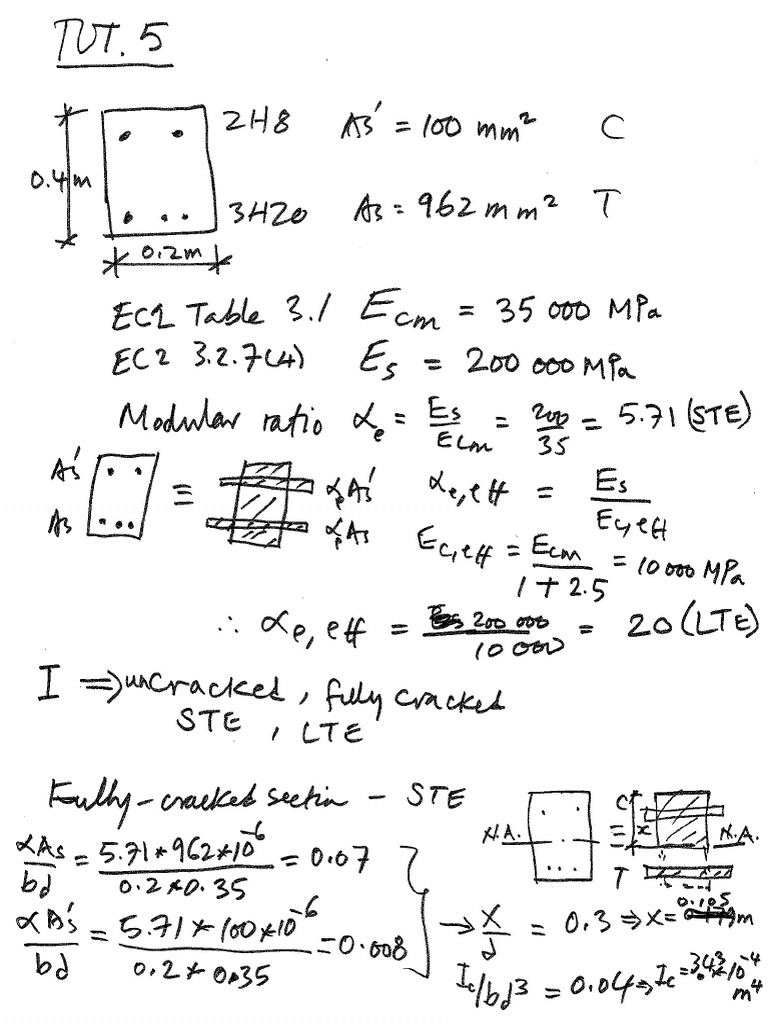 TUT. 5
2H8 As' = 100 mm² C
0.4m
3H20 As = 962 mm² T
0.2m
EC2 Table 3.1 Ecm = 35 000 MPa
EC2 3.2.7(4) Es = 200 000 MPa
Modular ratio αe = Es/Ecm = 200/35 = 5.71 (STE)
As' ≡ αeAs' αe,eff = Es/Ec,eff
As αeAs Ec,eff = Ecm/1+2.5 = 10 000 MPa
∴ αe,eff = 200 000/10 000 = 20 (LTE)
I ⇒ uncracked, fully cracked
STE, LTE
Fully-cracked section - STE
C
N.A. = x N.A.
T
αAs/bd = 5.71*962*10⁻⁶/0.2*0.35 = 0.07
αAs'/bd = 5.71*100*10⁻⁶/0.2*0.35 = 0.008
→ x/d = 0.3 ⇒ x = 0.105 m
Ic/bd³ = 0.04 ⇒ Ic = 3.43*10⁻⁴ m⁴